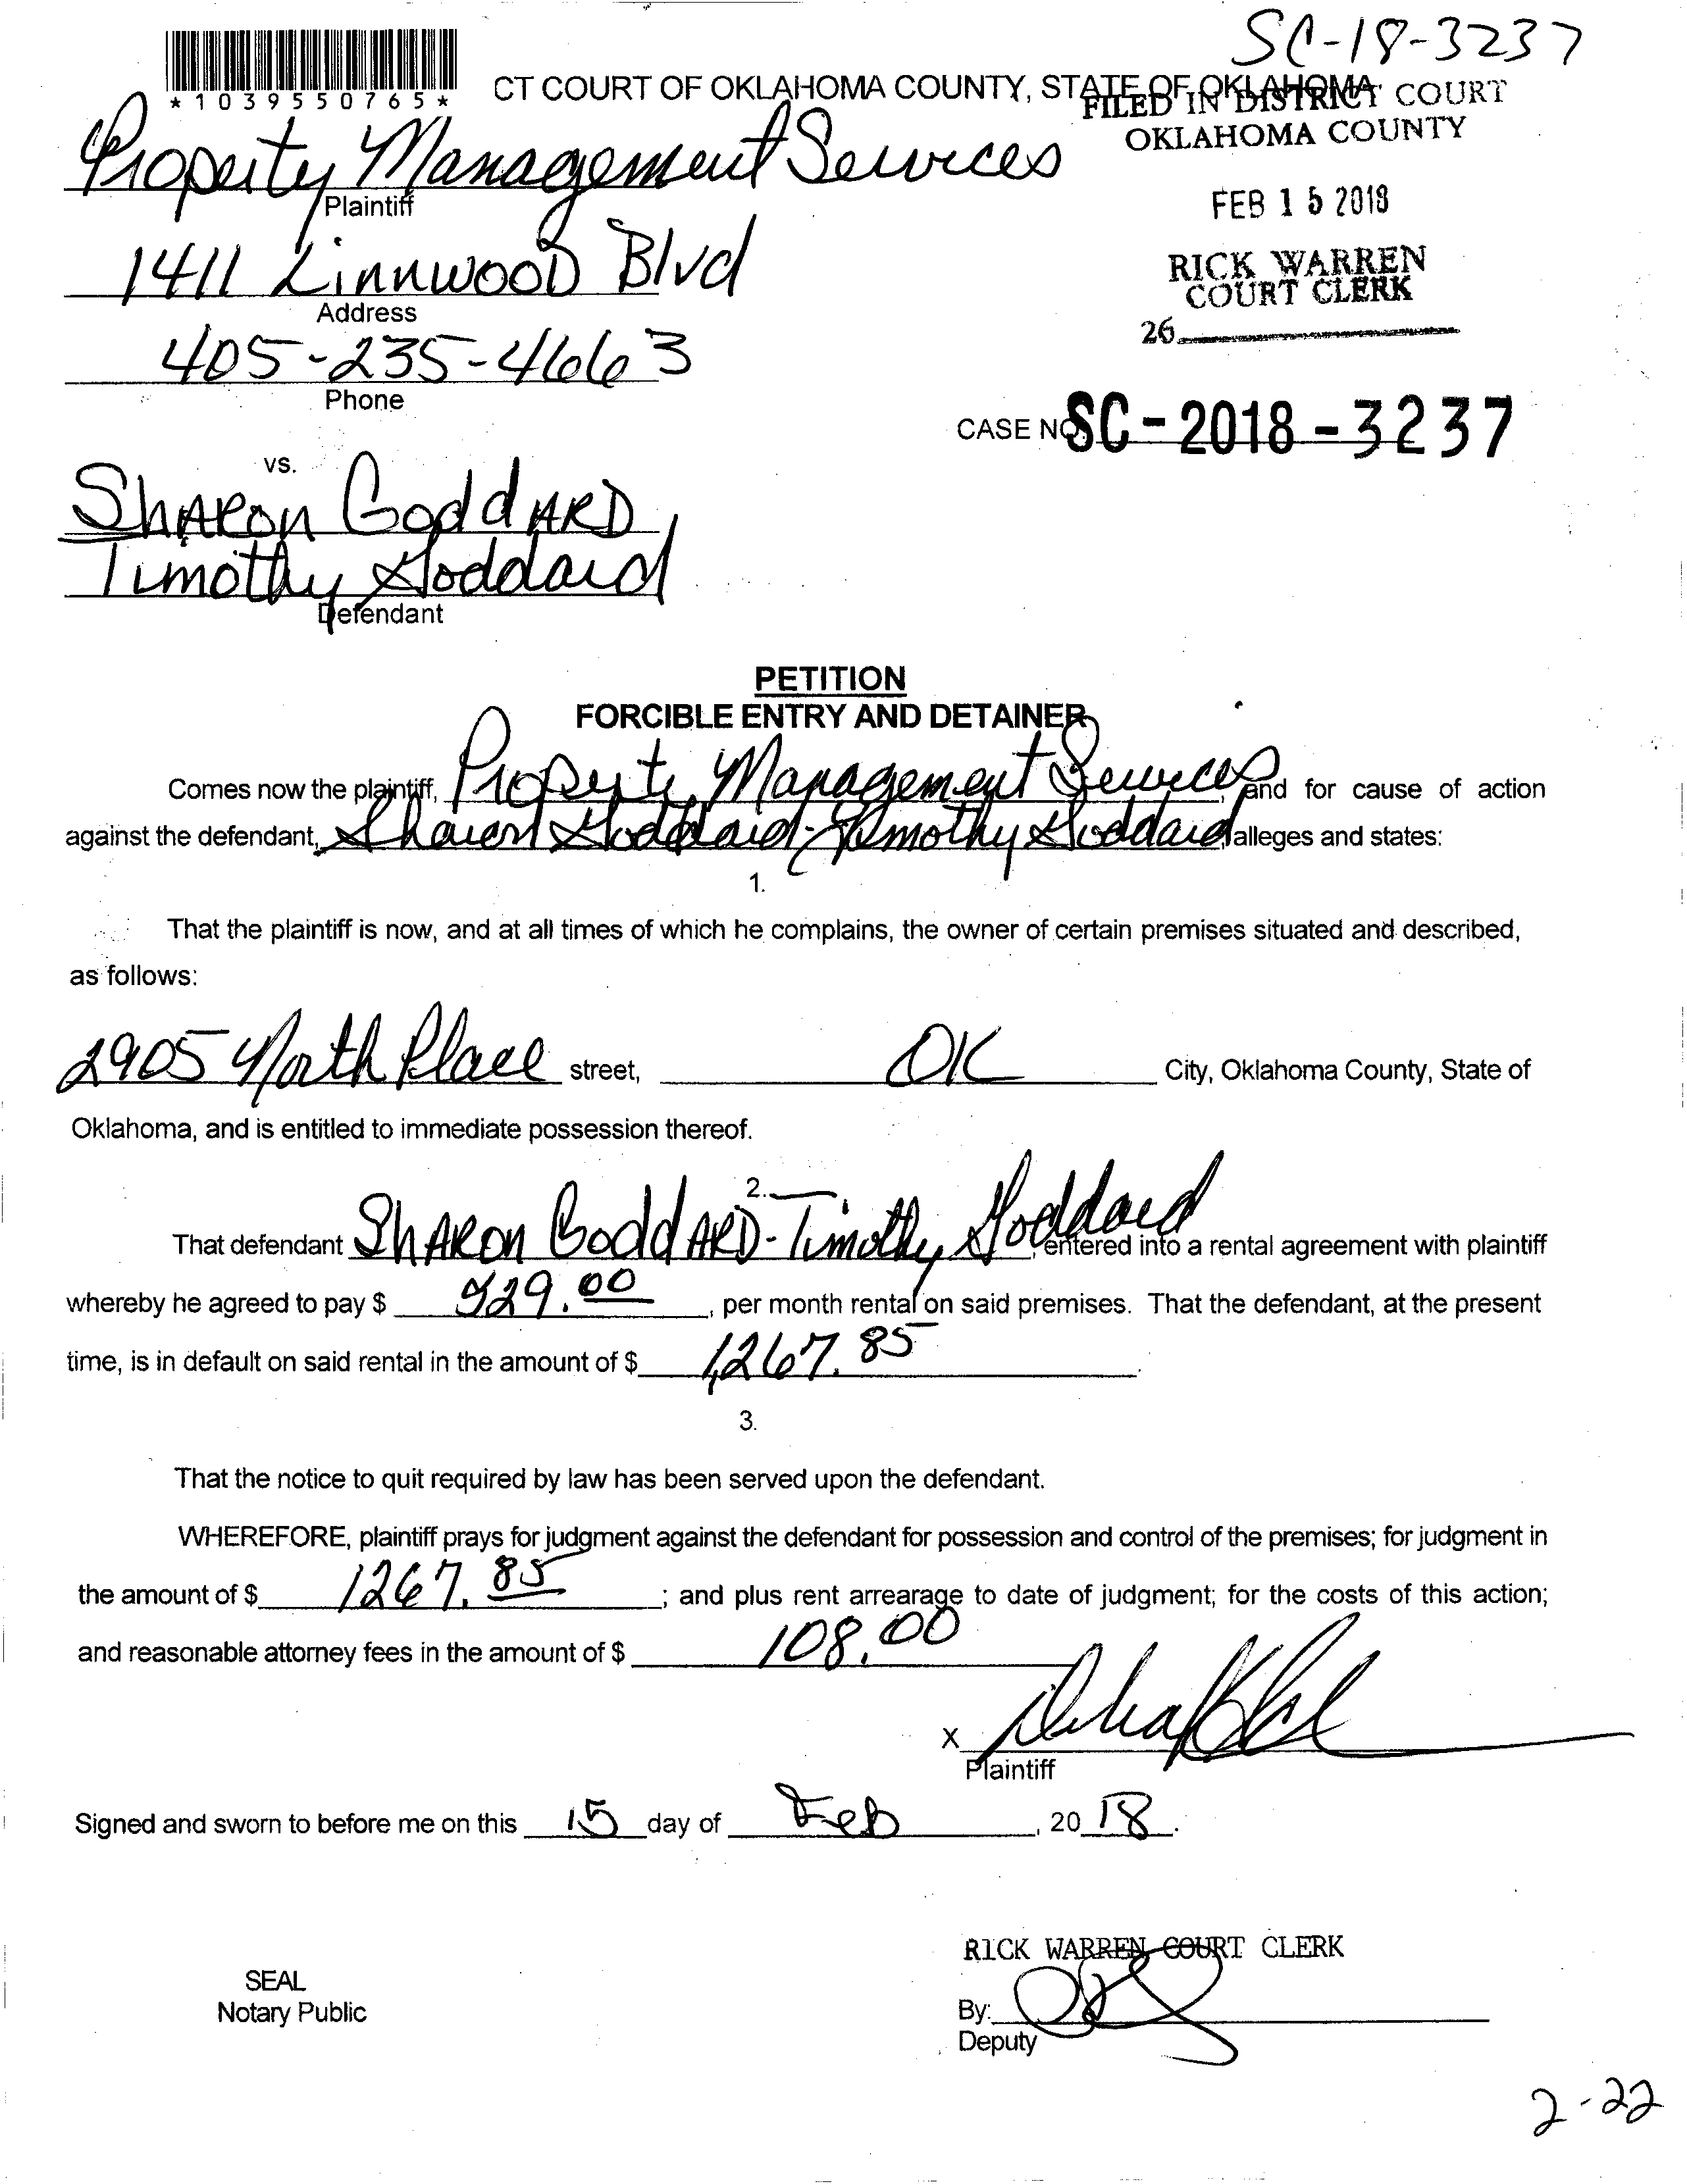 SC-18-3237
*1039550765*
CT COURT OF OKLAHOMA COUNTY, STATE OF OKLAHOMA
FILED IN DISTRICT COURT
OKLAHOMA COUNTY
Property Management Services
Plaintiff
FEB 15 2018
1411 Linnwood Blvd
Address
RICK WARREN
COURT CLERK
405-235-4663
Phone
26
CASE NO. SC-2018-3237
vs.
Sharon Goddard
Timothy Goddard
Defendant
PETITION
FORCIBLE ENTRY AND DETAINER
Comes now the plaintiff, Property Management Services, and for cause of action
against the defendant, Sharon Goddard-Timothy Goddard, alleges and states:
1.
That the plaintiff is now, and at all times of which he complains, the owner of certain premises situated and described,
as follows:
2905 North Place street, OK City, Oklahoma County, State of
Oklahoma, and is entitled to immediate possession thereof.
2.
That defendant Sharon Goddard-Timothy Goddard, entered into a rental agreement with plaintiff
whereby he agreed to pay $ 29.00, per month rental on said premises. That the defendant, at the present
time, is in default on said rental in the amount of $ 1,267.85.
3.
That the notice to quit required by law has been served upon the defendant.
WHEREFORE, plaintiff prays for judgment against the defendant for possession and control of the premises; for judgment in
the amount of $ 1267.85; and plus rent arrearage to date of judgment; for the costs of this action;
and reasonable attorney fees in the amount of $ 108.00
X
Plaintiff
Signed and sworn to before me on this 15 day of Feb, 2018.
RICK WARREN, COURT CLERK
SEAL
Notary Public
By:
Deputy
2-22